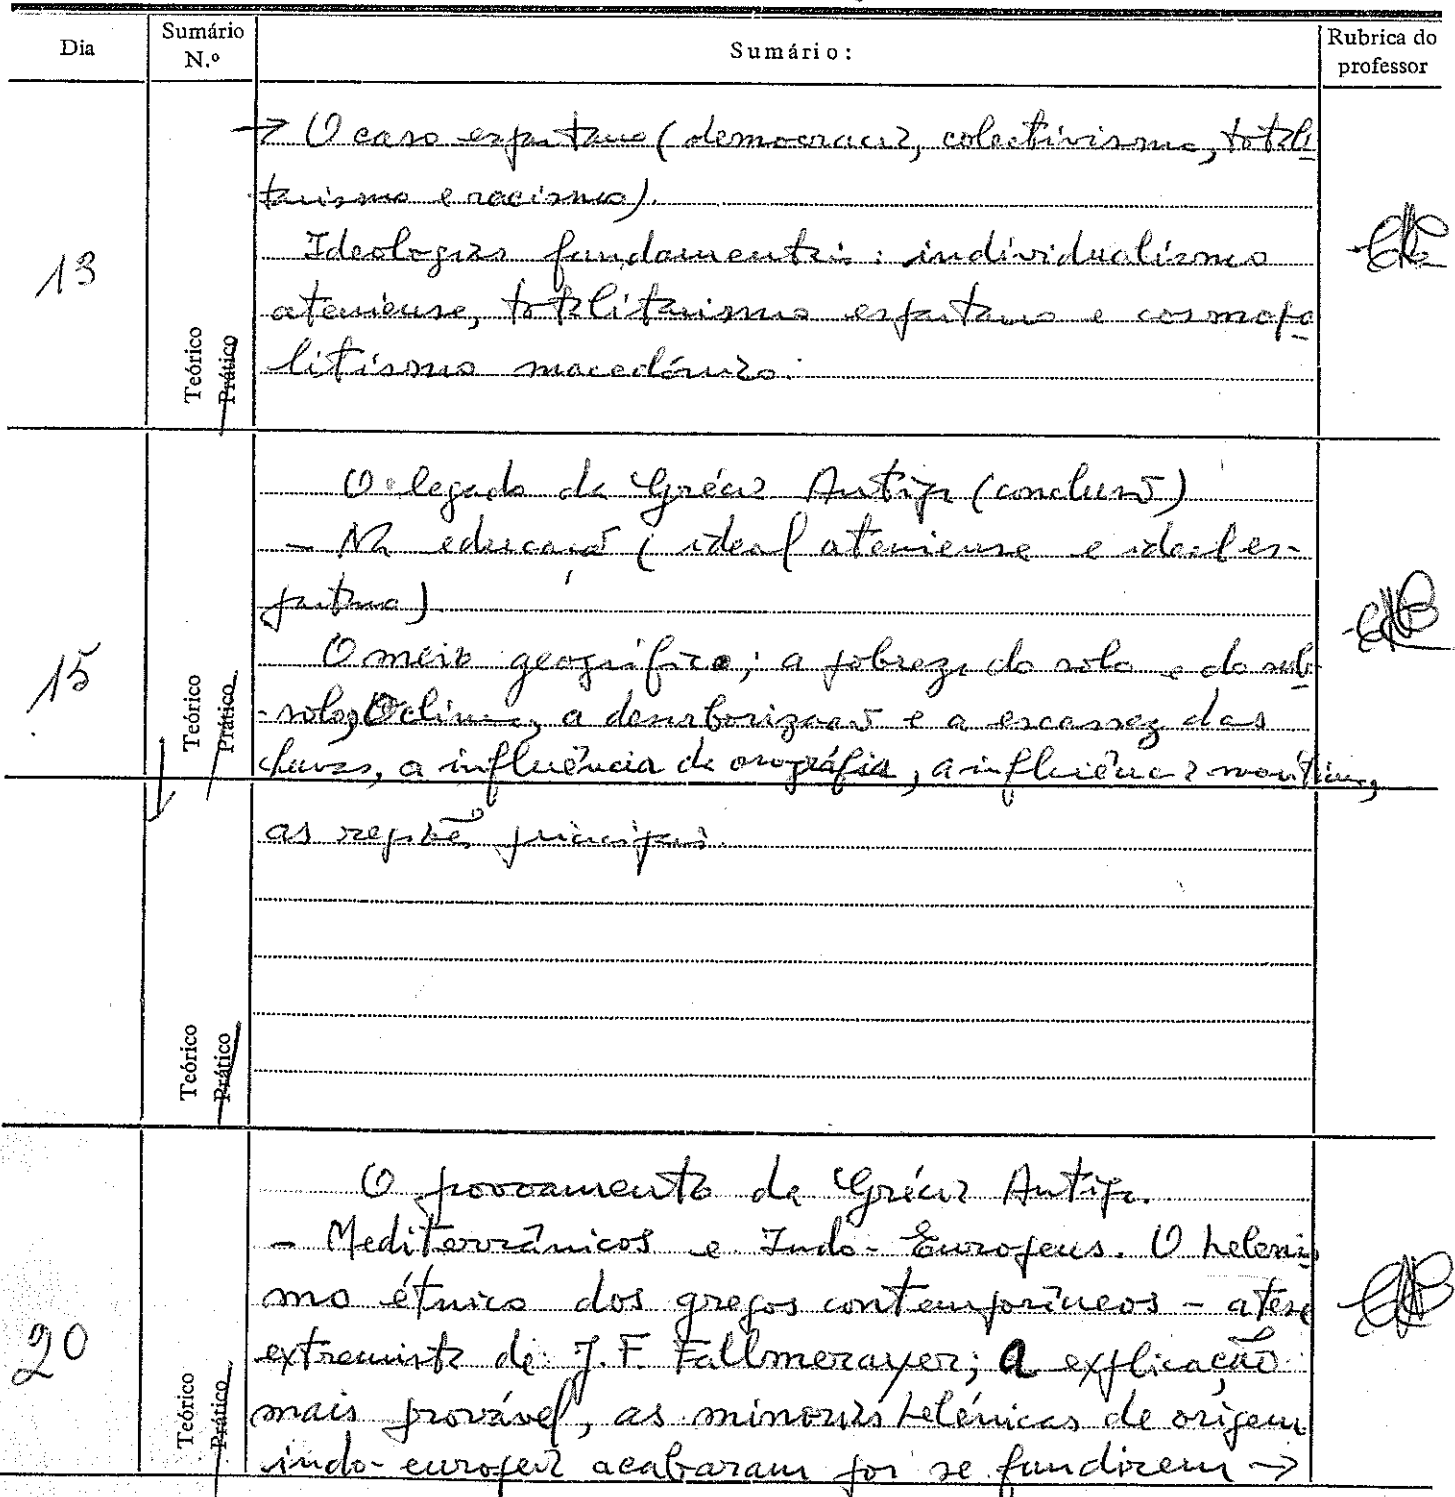 Dia
Sumário N.º
Sumário:
Rubrica do professor
→ O caso espartano (democracia, colectivismo, totali
tarismo e racismo).
13
Ideologias fundamentais: individualismo
ateniense, totalitarismo espartano e cosmopo
litismo macedónio.
Teórico
Prático
O legado da Grécia Antiga (conclusão)
- Na educação (ideal ateniense e ideal es-
partano)
15
O meio geográfico; a pobreza do solo e do sub
-solo, O clima, a desarborização e a escassez das
chuvas, a influência da orografia, a influência marítima,
Teórico
Prático
as regiões principais.
Teórico
Prático
O povoamento da Grécia Antiga.
- Mediterrânicos e Indo-Europeus. O helenis
mo étnico dos gregos contemporâneos - a tese
20
extremista de J. F. Fallmerayer; a explicação
mais provável, as minorias helénicas de origem
indo-europeia acabaram por se fundirem →
Teórico
Prático